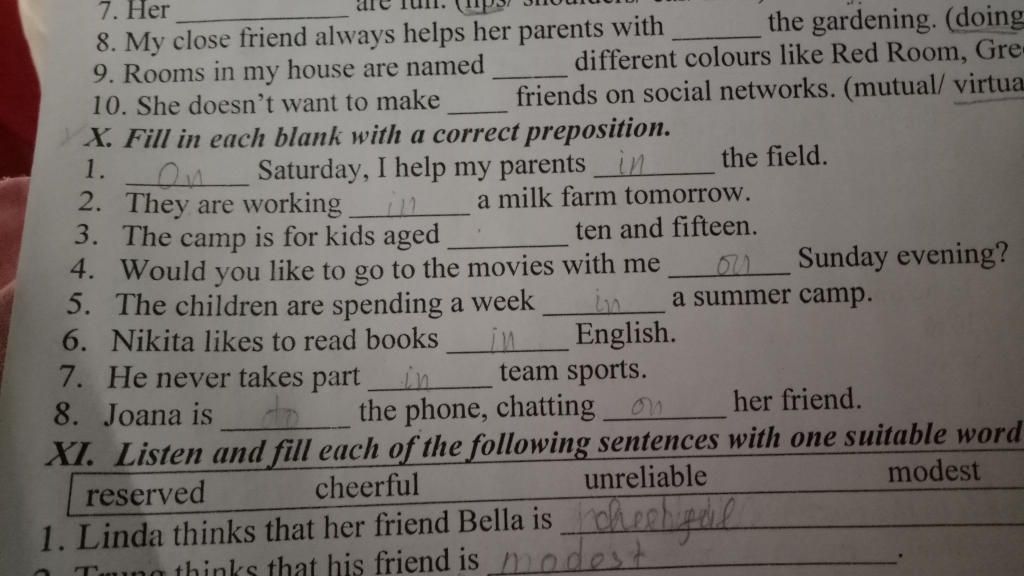 7. Her ________ are full. (lips/ shoulders/
8. My close friend always helps her parents with ______ the gardening. (doing
9. Rooms in my house are named _____ different colours like Red Room, Gre
10. She doesn't want to make ____ friends on social networks. (mutual/ virtua
X. Fill in each blank with a correct preposition.
1. On Saturday, I help my parents in the field.
2. They are working in a milk farm tomorrow.
3. The camp is for kids aged ________ ten and fifteen.
4. Would you like to go to the movies with me on Sunday evening?
5. The children are spending a week in a summer camp.
6. Nikita likes to read books in English.
7. He never takes part in team sports.
8. Joana is the phone, chatting on her friend.
XI. Listen and fill each of the following sentences with one suitable word
reserved cheerful unreliable modest
1. Linda thinks that her friend Bella is
thinks that his friend is modest.